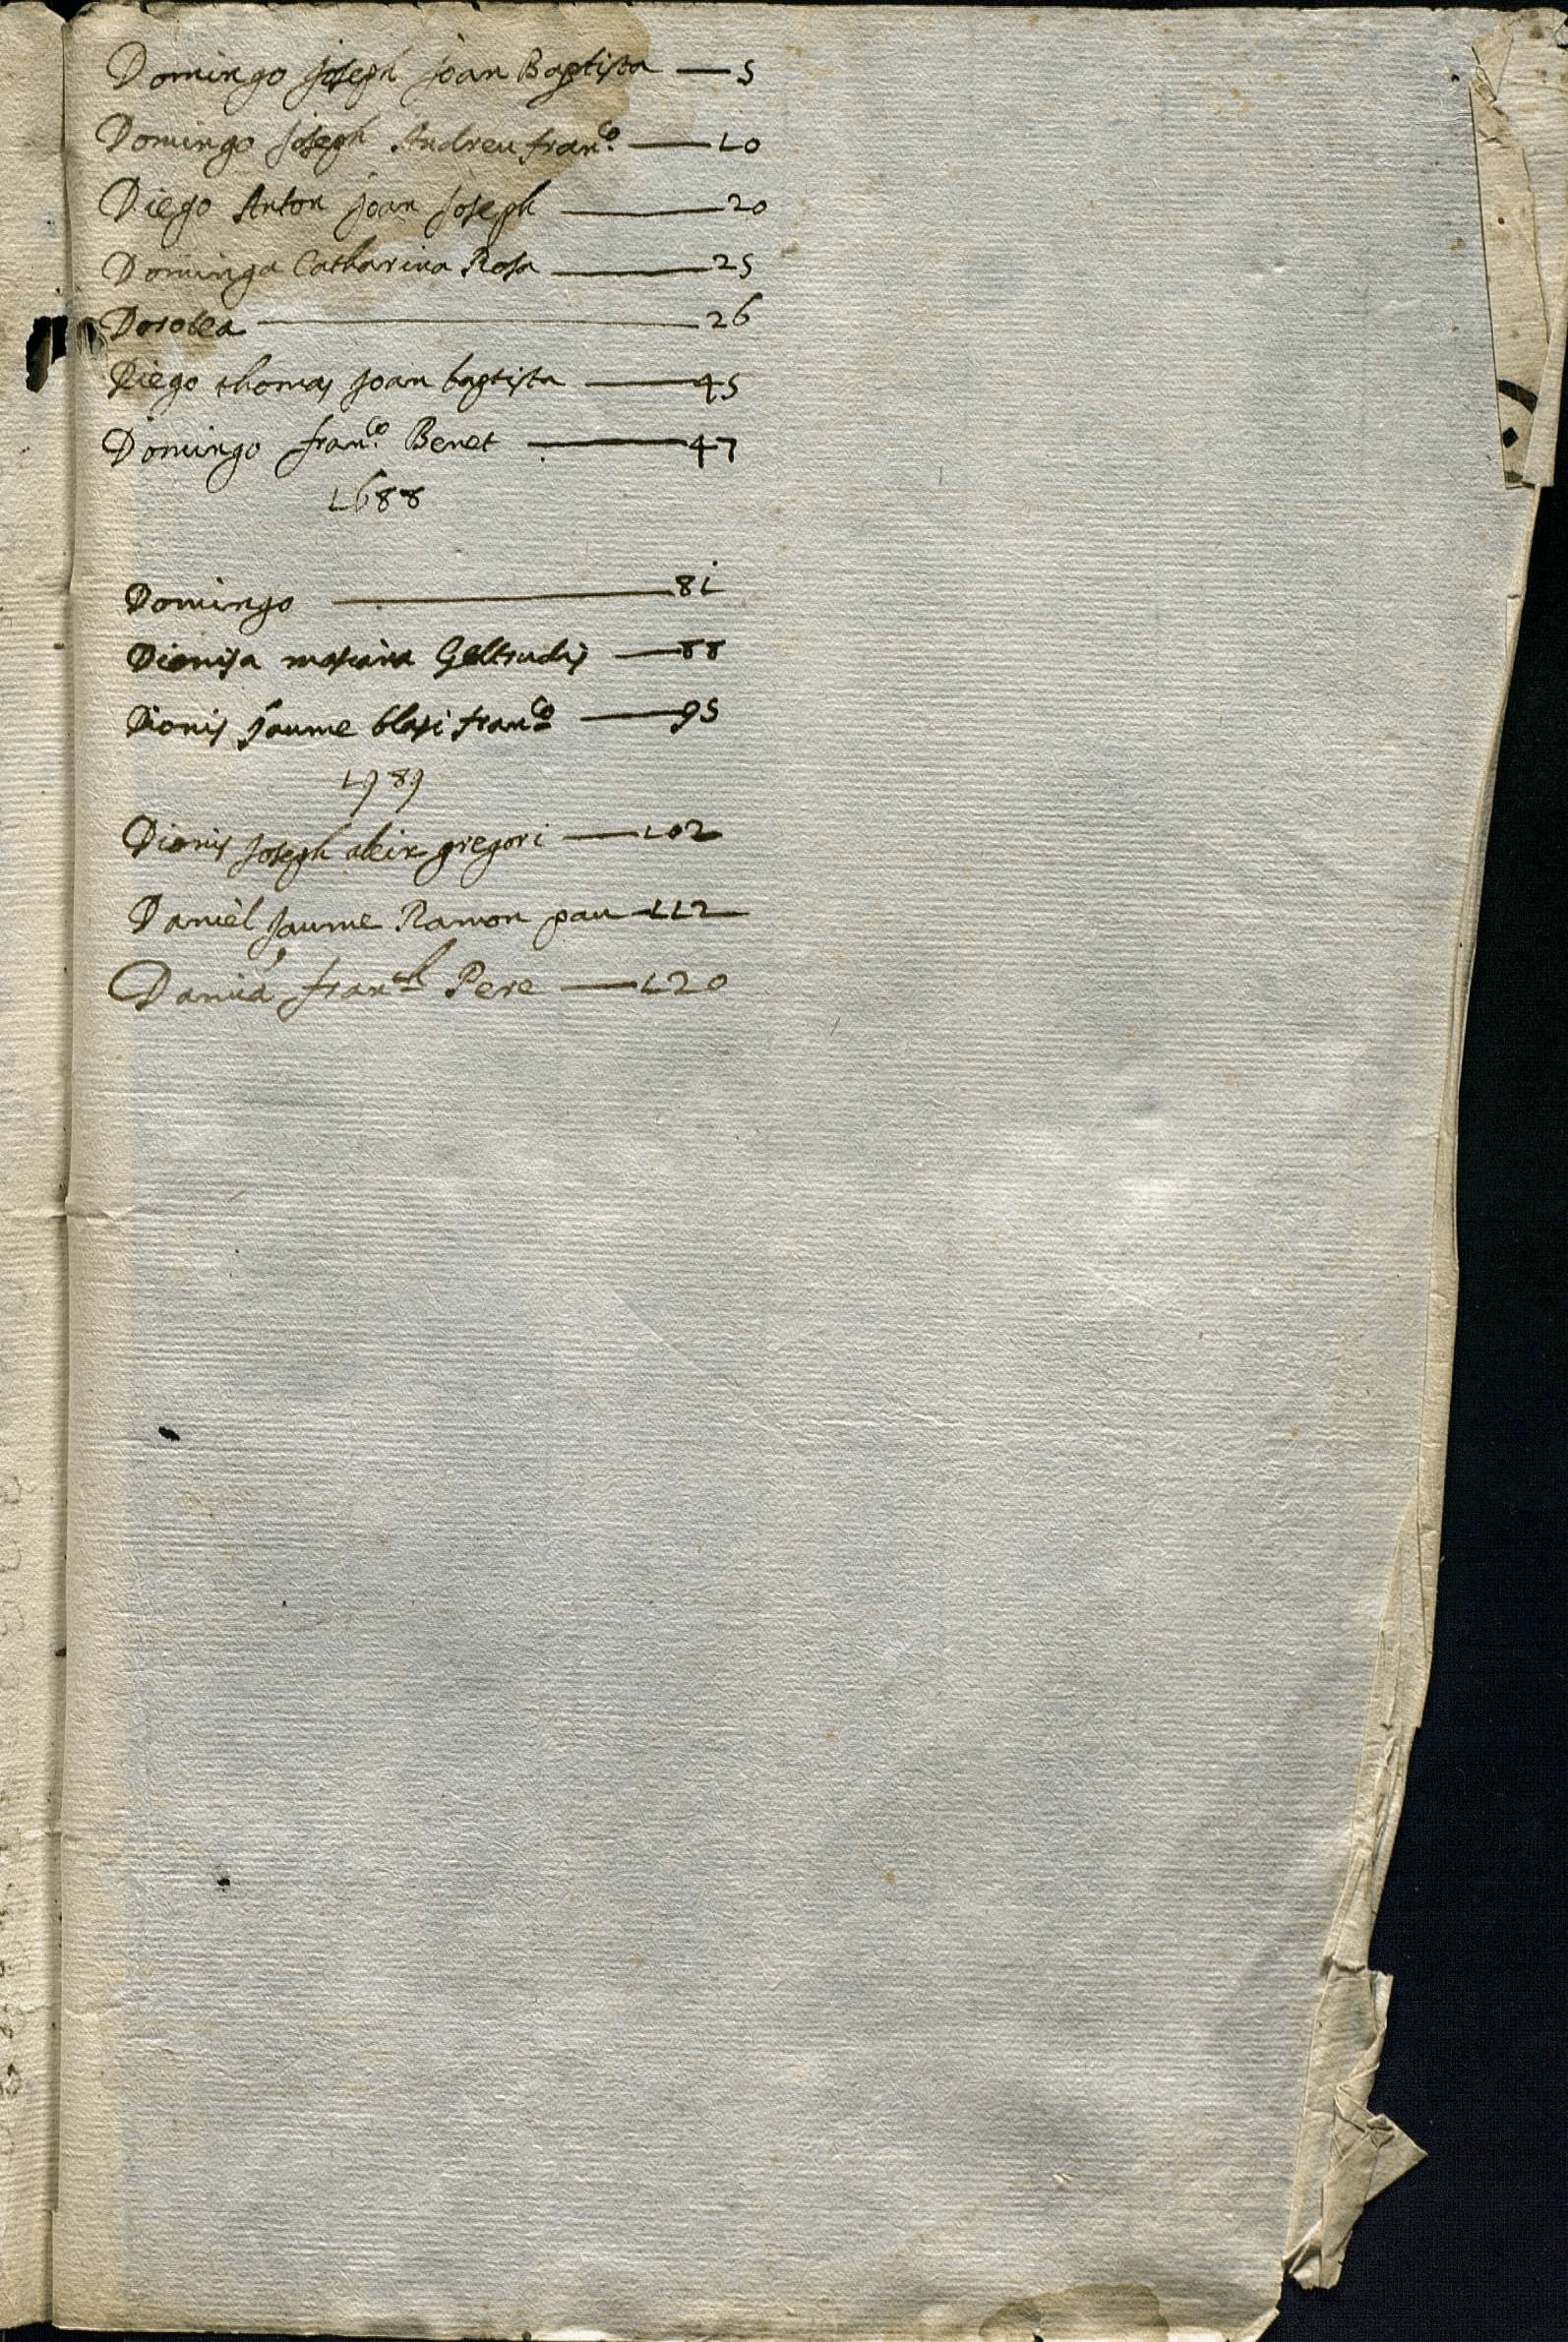 Domingo Joseph Joan Baptista — 5
Domingo Joseph Andreu franco — 10
Diego Anton Joan Joseph — 20
Dominga Catharina Rosa — 25
Dorotea — 26
Diego thomas Joan baptista — 45
Domingo franco Benet — 47
1688
Domingo — 81
Dionisa mariana Geltrudis — 88
Dionis Jaume blasi franco — 95
1989
Dionis Joseph aleix gregori — 102
Daniel Jaume Ramon pau — 112
franch Pere — 120